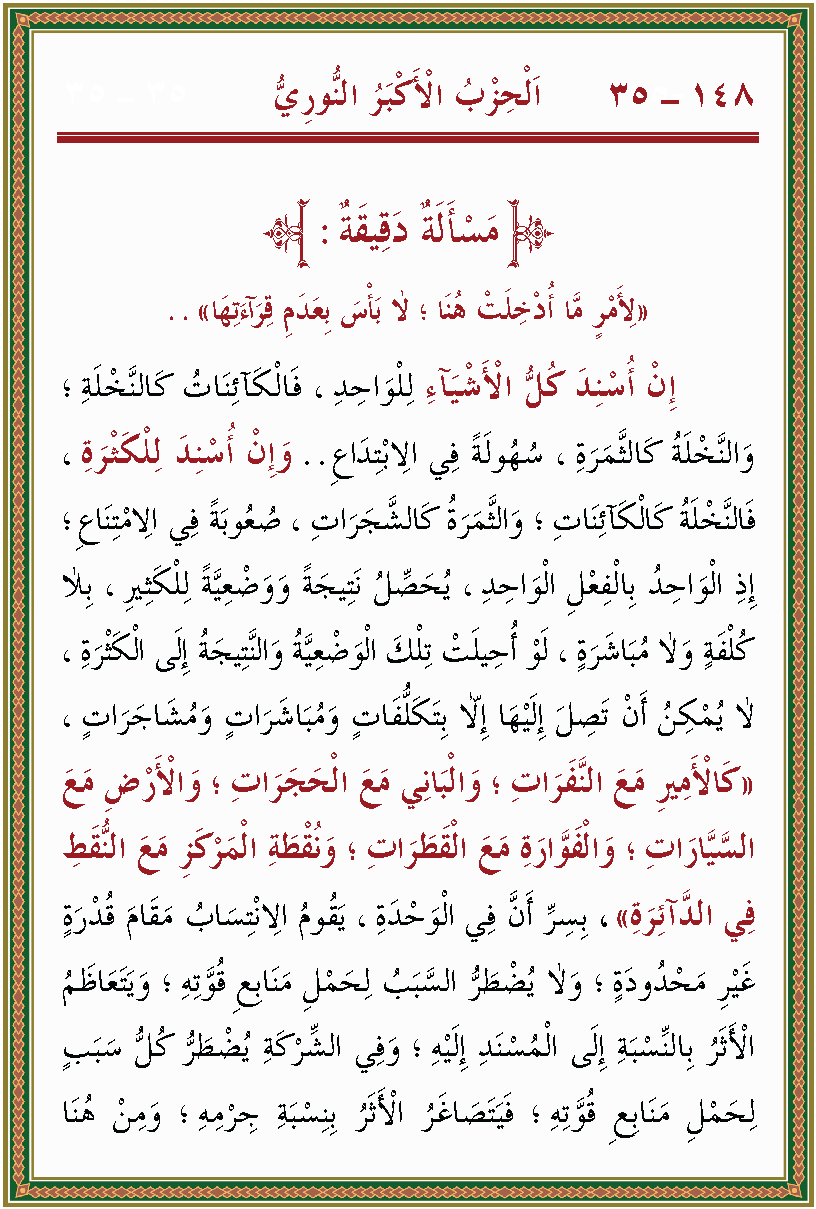 ١٤٨ – ٣٥ اَلْحِزْبُ الْأَكْبَرُ النُّورِيُّ ٣٥ – ٣٥
مَسْأَلَةٌ دَقِيقَةٌ :
«لِأَمْرٍ مَّا أُدْخِلَتْ هُنَا ؛ لَا بَأْسَ بِعَدَمِ قِرَآءَتِهَا» . .
إِنْ أُسْنِدَ كُلُّ الْأَشْيَآءِ لِلْوَاحِدِ ، فَالْكَآئِنَاتُ كَالنَّخْلَةِ ؛
وَالنَّخْلَةُ كَالثَّمَرَةِ ، سُهُولَةً فِي الِابْتِدَاعِ . . وَإِنْ أُسْنِدَ لِلْكَثْرَةِ ،
فَالنَّخْلَةُ كَالْكَآئِنَاتِ ؛ وَالثَّمَرَةُ كَالشَّجَرَاتِ ، صُعُوبَةً فِي الِامْتِنَاعِ ؛
إِذِ الْوَاحِدُ بِالْفِعْلِ الْوَاحِدِ ، يُحَصِّلُ نَتِيجَةً وَوَضْعِيَّةً لِلْكَثِيرِ ، بِلَا
كُلْفَةٍ وَلَا مُبَاشَرَةٍ ، لَوْ أُحِيلَتْ تِلْكَ الْوَضْعِيَّةُ وَالنَّتِيجَةُ إِلَى الْكَثْرَةِ ،
لَا يُمْكِنُ أَنْ تَصِلَ إِلَيْهَا إِلَّا بِتَكَلُّفَاتٍ وَمُبَاشَرَاتٍ وَمُشَاجَرَاتٍ ،
«كَالْأَمِيرِ مَعَ النَّفَرَاتِ ؛ وَالْبَانِي مَعَ الْحَجَرَاتِ ؛ وَالْأَرْضِ مَعَ
السَّيَّارَاتِ ؛ وَالْفَوَّارَةِ مَعَ الْقَطَرَاتِ ؛ وَنُقْطَةِ الْمَرْكَزِ مَعَ النُّقَطِ
فِي الدَّآئِرَةِ» ، بِسِرِّ أَنَّ فِي الْوَحْدَةِ ، يَقُومُ الِانْتِسَابُ مَقَامَ قُدْرَةٍ
غَيْرِ مَحْدُودَةٍ ؛ وَلَا يُضْطَرُّ السَّبَبُ لِحَمْلِ مَنَابِعِ قُوَّتِهِ ؛ وَيَتَعَاظَمُ
الْأَثَرُ بِالنِّسْبَةِ إِلَى الْمُسْنَدِ إِلَيْهِ ؛ وَفِي الشِّرْكَةِ يُضْطَرُّ كُلُّ سَبَبٍ
لِحَمْلِ مَنَابِعِ قُوَّتِهِ ؛ فَيَتَصَاغَرُ الْأَثَرُ بِنِسْبَةِ جِرْمِهِ ؛ وَمِنْ هُنَا